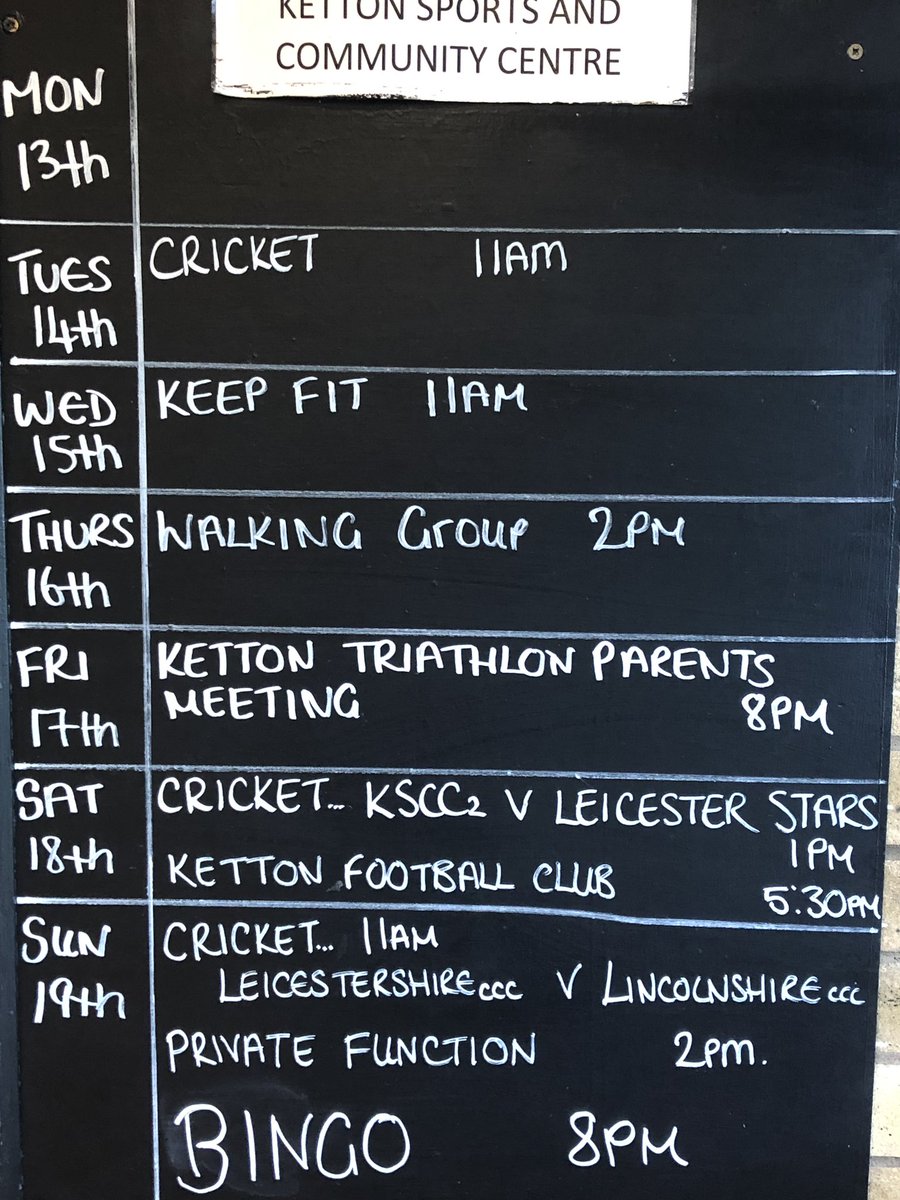 KETTON SPORTS AND
COMMUNITY CENTRE
MON
13th
TUES
14th
CRICKET 11AM
WED
15th
KEEP FIT 11AM
THURS
16th
WALKING Group 2PM
FRI
17th
KETTON TRIATHLON PARENTS
MEETING 8PM
SAT
18th
CRICKET... KSCC2 V LEICESTER STARS
1PM
KETTON FOOTBALL CLUB
5:30PM
SUN
19th
CRICKET... 11AM
LEICESTERSHIRE CCC V LINCOLNSHIRE CCC
PRIVATE FUNCTION 2pm.
BINGO 8PM